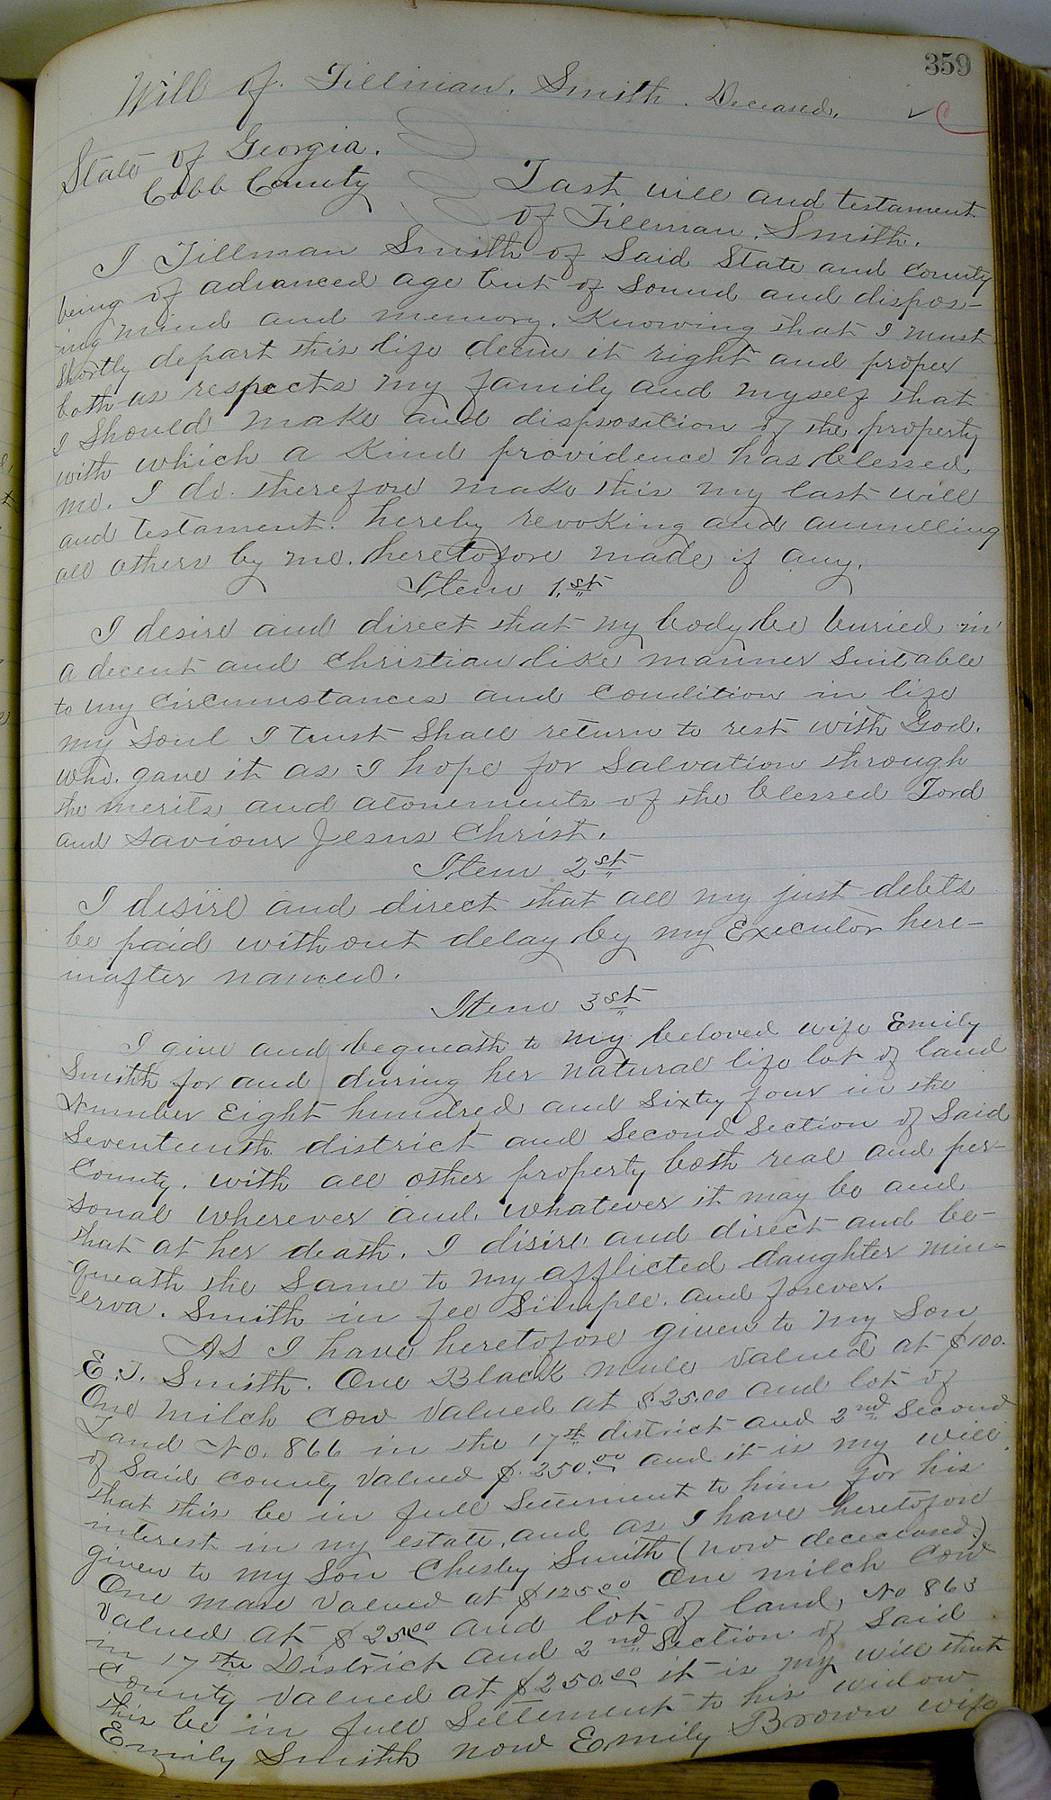 359
Will of Tillman. Smith. Deceased.
State of Georgia.
Cobb County
Last will and testament
of Tillman. Smith.
I Tillman Smith of Said State and County
being of advanced age but of Sound and dispos-
ing mind and memory. Knowing that I must
shortly depart this life deem it right and proper
both as respects my family and myself that
I Should make and disposition of the property
with which a Kind providence has blessed
me. I do. therefore make this my last will
and testament. hereby revoking and annulling
all others by me. heretofore made if any.
Item 1.st
I desire and direct that my body be buried in
a decent and Christian like manner Suitable
to my Circumstances and Condition in life
my Soul I trust Shall return to rest with God.
who. gave it as I hope for Salvation through
the merits and atonements of the blessed Lord
and Saviour Jesus Christ.
Item 2st
I desire and direct that all my just debts
be paid without delay by my Executor here-
inafter named.
Item 3st
I give and bequeath to my beloved wife Emily
Smith for and during her natural life lot of land
Number Eight hundred and Sixty four in the
Seventeenth district and Second Section of Said
County. with all other property both real and per-
sonal wherever and. whatever it may be and
that at her death. I disire and direct and be-
queath the Same to my afflicted daughter Min-
erva. Smith in fee Simple. and forever.
As I have heretofore given to my Son
E. T. Smith. One Black Mule Valued at $100.
One Milch Cow Valued at $25.00 and lot of
Land No. 866 in the 17th district and 2nd Second
of Said County Valued $. 250.00 and it is my will
that this be in full Settement to him for his
interest in my estate, and as I have heretofore
given to my Son Chesley Smith (now dececased.)
One mare Valued at $125.00 One milch Cow
Valued at $25.00 and lot of land, No 863
in 17the District and 2nd Section of Said
County Valued at $250.00 it is my will that
this be in full Settement to his widow
Emily Smith now Emily Brown wife